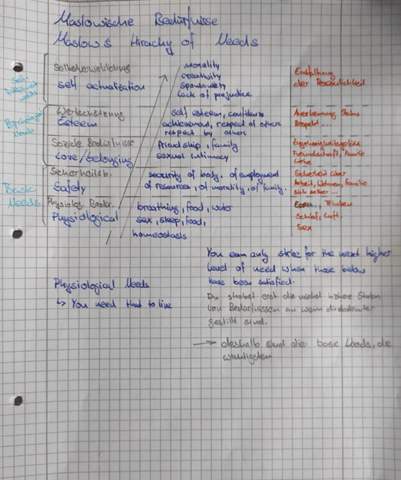 Maslowische Bedürfnisse
Maslow's Hirachy of Needs
Selbstverwirklichung
self actualisation
morality
creativity
spontaneity
lack of prejudice
Entfaltung
der Persönlichkeit
Wertschätzung
Esteem
self esteem, confidence
achievement, respect of others
respect by others
Anerkennung, Status
Respekt
Soziale Bedürfnisse
Love/belonging
friend ship, family
sexual intimacy
Freundschaft, Familie
Liebe
Sicherheitsb.
Safety
security of body, of employment
of resources, of morality, of family,
Arbeit, Wohnen, Familie
Physiolog. Bedür.
Physiological
breathing, food, water
sex, sleep, food,
homeostasis
Essen, Trinken
Schlaf, Luft
Sex
Basic
Needs
You can only strive for the next higher
level of need when those below
have been satisfied.
Physiological Needs
↳ You need that to live
Du strebst erst die nächst höhere Stufen
von Bedürfnissen an wenn die darunter
gestillt sind.
→ deshalb sind die basic Needs, die
wichtigsten